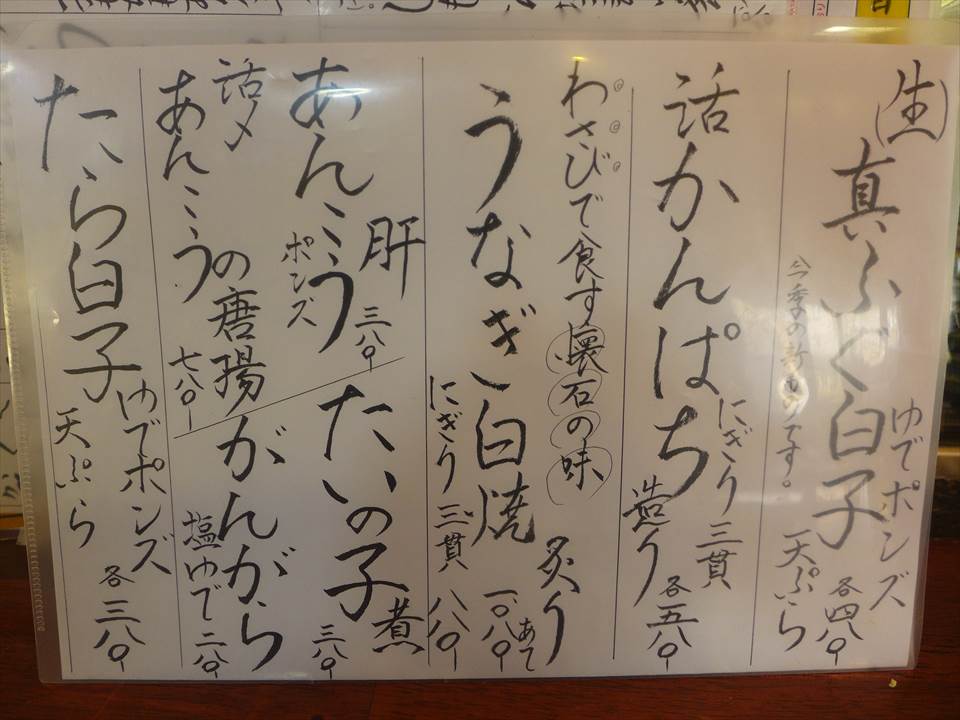 生
真ふぐ白子
ゆでポンズ
天ぷら
各四八〇
今季の新もので​す。
活かんぱち
にぎり三貫
造り
各五八〇
わさびで食す懐石の味
うなぎ白焼
炙り
あて
一〇八〇
にぎり三貫
八八〇
あんこう
肝
ポンズ
三八〇
たいの子
煮
三八〇
活〆
あんこう
の唐揚
七八〇
がんがら
塩ゆで二八〇
たら白子
ゆでポンズ
天ぷら
各三八〇